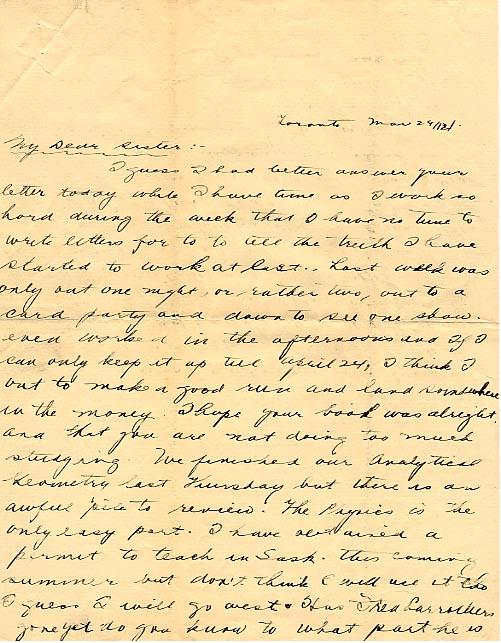 Toronto Mar 29/21.
My Dear Sister :-
I guess I had better answer your
letter today while I have time as I work so
hard during the week that I have no time to
write letters for to to tell the truth I have
started to work at last.. Last week was
only out one night, or rather two, out to a
card party and down to see one show.
even worked in the afternoons and If I
can only keep it up till April 24, I think I
out to make a good run and land somewhere
in the money. I hope your book was alright.
and that you are not doing too much
studying. We finished our Analytical
Geometry last Thursday but there is an
awful pile to review. The Physics is the
only easy part. I have obtained a
permit to teach in Sask. this coming
summer but don't think I will use it tho
I guess I will go west. Has Fred Carrothers
gone yet do you know to what part he is